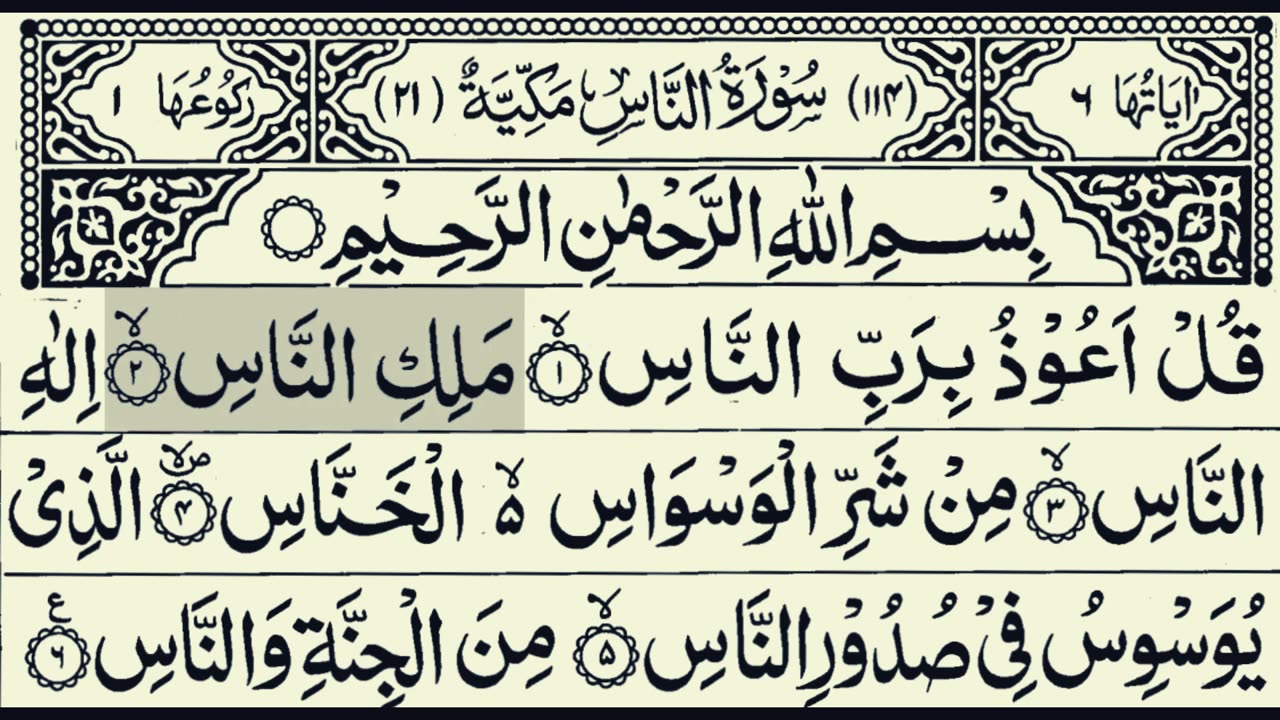 اٰيَاتُهَا ٦ (١١٤) سُوْرَةُ النَّاسِ مَكِّيَّةٌ (٢١) رُكُوْعُهَا ١
بِسْمِ اللّٰهِ الرَّحْمٰنِ الرَّحِيْمِ
قُلْ اَعُوْذُ بِرَبِّ النَّاسِ ۙ﴿١﴾ مَلِكِ النَّاسِ ۙ﴿٢﴾ اِلٰهِ
النَّاسِ ۙ﴿٣﴾ مِنْ شَرِّ الْوَسْوَاسِ ۙ۵ الْخَنَّاسِ ۪ۙ﴿۴﴾ الَّذِیْ
يُوَسْوِسُ فِیْ صُدُوْرِ النَّاسِ ۙ﴿۵﴾ مِنَ الْجِنَّةِ وَالنَّاسِ ع﴿٦﴾